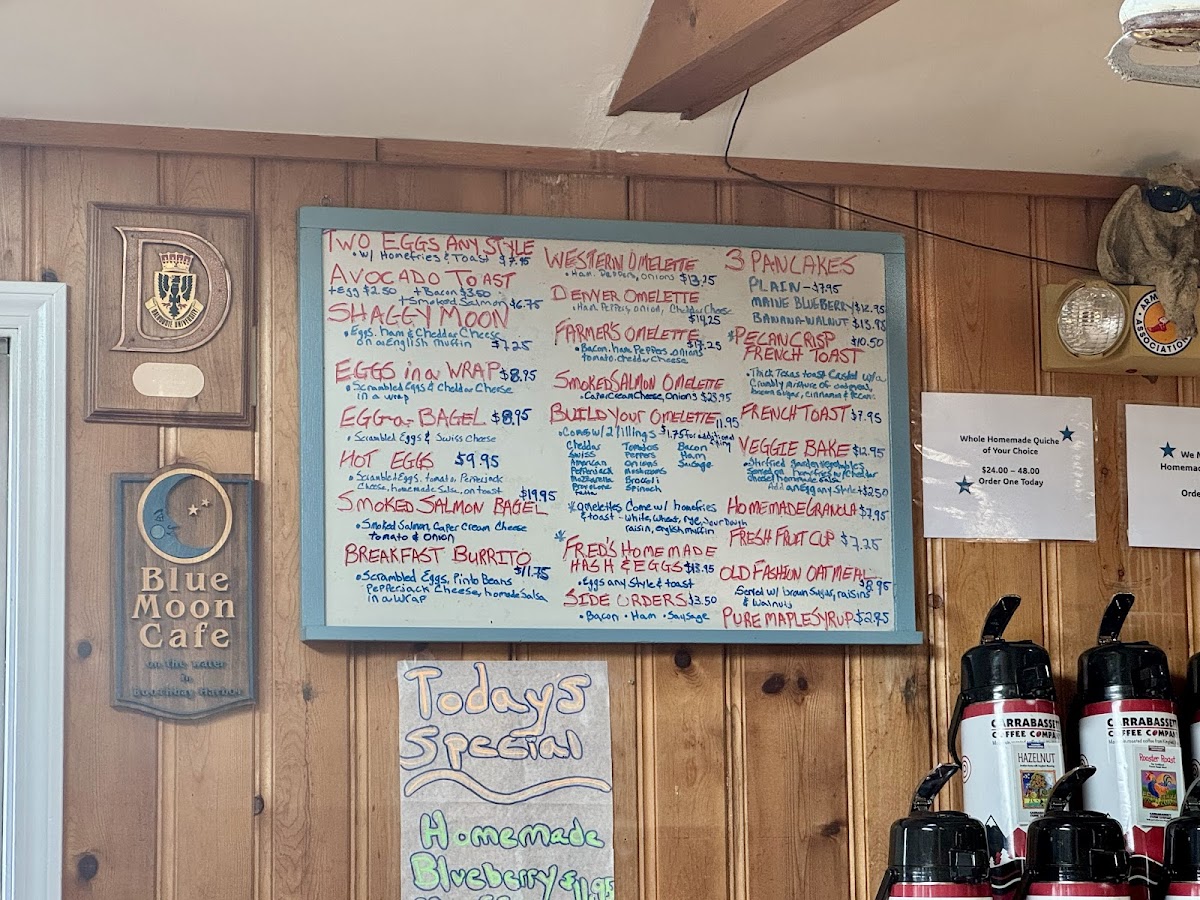 TWO EGGS ANY STYLE
• W/ Homefries & Toast $7.95
AVOCADO TOAST
+Egg $2.50 +Bacon $3.50
+Smoked Salmon $6.75
SHAGGY MOON
• Eggs, Ham & Cheddar Cheese
on an English muffin $7.25
EGGS in a WRAP $8.95
• Scrambled Eggs & Cheddar Cheese
in a wrap
EGG-a-BAGEL $8.95
• Scrambled Eggs & Swiss Cheese
HOT EGGS $9.95
• Scrambled Eggs, tomato, Pepperjack
Cheese, homemade Salsa, on toast
$19.95
SMOKED SALMON BAGEL
• Smoked Salmon, Caper Cream Cheese
Tomato & Onion
BREAKFAST BURRITO
$11.75
• Scrambled Eggs, Pinto Beans
Pepperjack Cheese, homade Salsa
in a wrap
WESTERN OMELETTE
• Ham, Peppers, Onions $13.25
DENVER OMELETTE
• Ham, Peppers, onion, Cheddar Cheese
$14.25
FARMER'S OMELETTE
• Bacon, ham, Peppers, onions
tomato, cheddar cheese
SMOKED SALMON OMELETTE
• Caper Cream Cheese, Onions $23.95
BUILD YOUR OMELETTE 11.95
• Comes w/ 2 fillings $1.75 for additional
Cheddar Tomatoes Bacon
Swiss Peppers Ham
American Onions Sausage
Pepperjack Mushrooms
Mozzarella Broccoli
Provolone Spinach
Feta
* Omelettes Come w/ homefries
& toast - White, Wheat, rye, Sour Dough
raisin, english muffin
* FRED'S HOMEMADE
HASH & EGGS $13.95
• Eggs any Style & toast
SIDE ORDERS $3.50
• Bacon • Ham • Sausage
3 PANCAKES
PLAIN - $7.95
MAINE BLUEBERRY $12.95
BANANA-WALNUT $13.95
* PECAN CRISP $10.50
FRENCH TOAST
• Thick Texas toast Crusted w/a
Crumbly mixture of oatmeal,
brown sugar, cinnamon & Pecans
FRENCH TOAST $7.95
VEGGIE BAKE $12.95
• Stirfried garden vegetables
Served on homefries w/ cheddar
cheese/homemade salsa
Add an egg any style + $2.50
HOMEMADE GRANOLA $7.95
FRESH FRUIT CUP $7.25
OLD FASHION OATMEAL
$8.95
Served w/ brown sugar, raisins
& walnuts
PURE MAPLE SYRUP $2.95
D
DALHOUSIE UNIVERSITY
Blue
Moon
Cafe
on the water
in
Boothbay Harbor
Todays
Special
Homemade
Blueberry $11.95
Whole Homemade Quiche
of Your Choice
$24.00 – 48.00
Order One Today
We
Homemad
Orde
ASSOCIATION
CARRABASSETT
COFFEE COMPANY
HAZELNUT
CARRABASSETT
COFFEE COMPANY
Rooster Roast